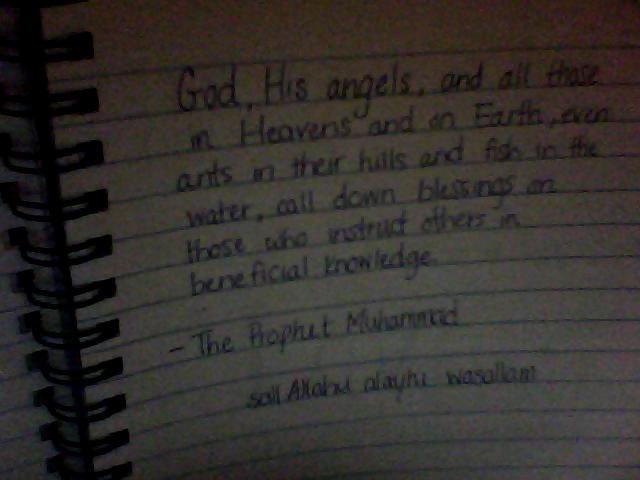 God, His angels, and all those
in Heavens and on Earth, even
ants in their hills and fish in the
water, call down blessings on
those who instruct others in
beneficial knowledge.
- The Prophet Muhammad
sall Allahu alayhi wasallam